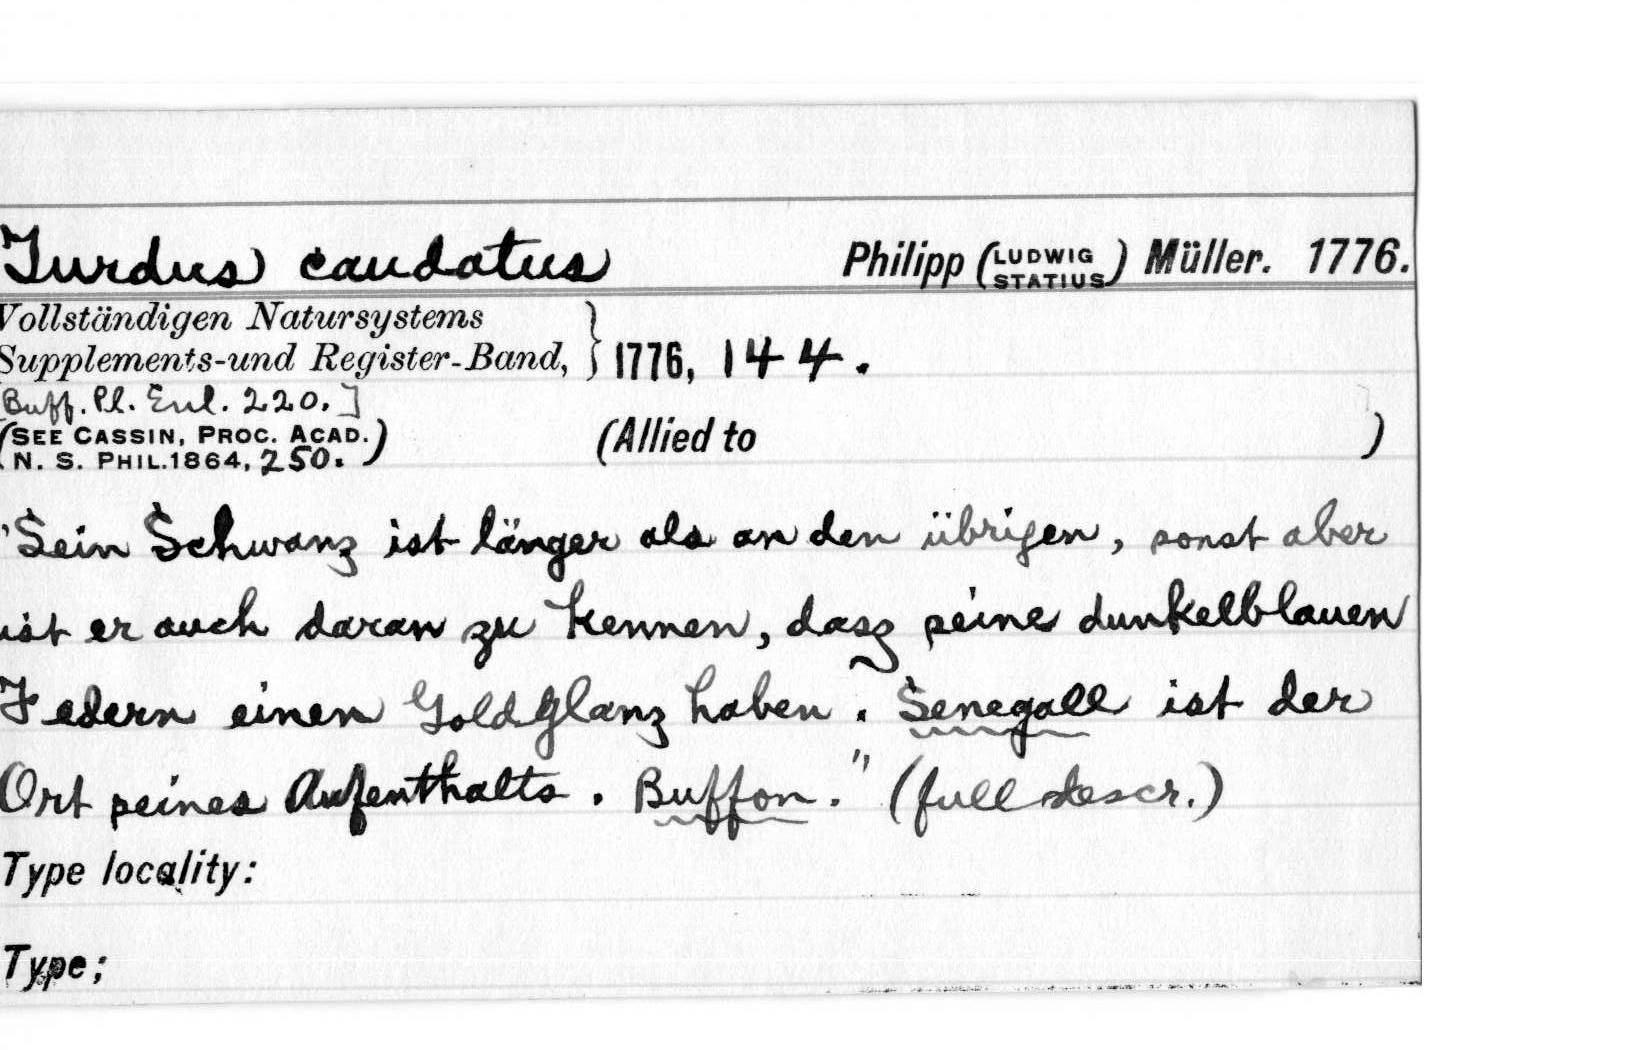 Turdus caudatus Philipp (LUDWIG STATIUS) Müller. 1776.
Vollständigen Natursystems
Supplements-und Register-Band, } 1776, 144.
[Buff. Pl. Enl. 220.]
(SEE CASSIN, PROC. ACAD.
N. S. PHIL.1864, 250.) (Allied to )
"Sein Schwanz ist länger als an den übrigen, sonst aber
ist er auch daran zu kennen, dasz seine dunkelblauen
Federn einen Goldglanz haben. Senegall ist der
Ort seines Aufenthalts. Buffon." (full descr.)
Type locality:
Type;